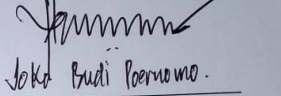 Joko Budi Poernomo.